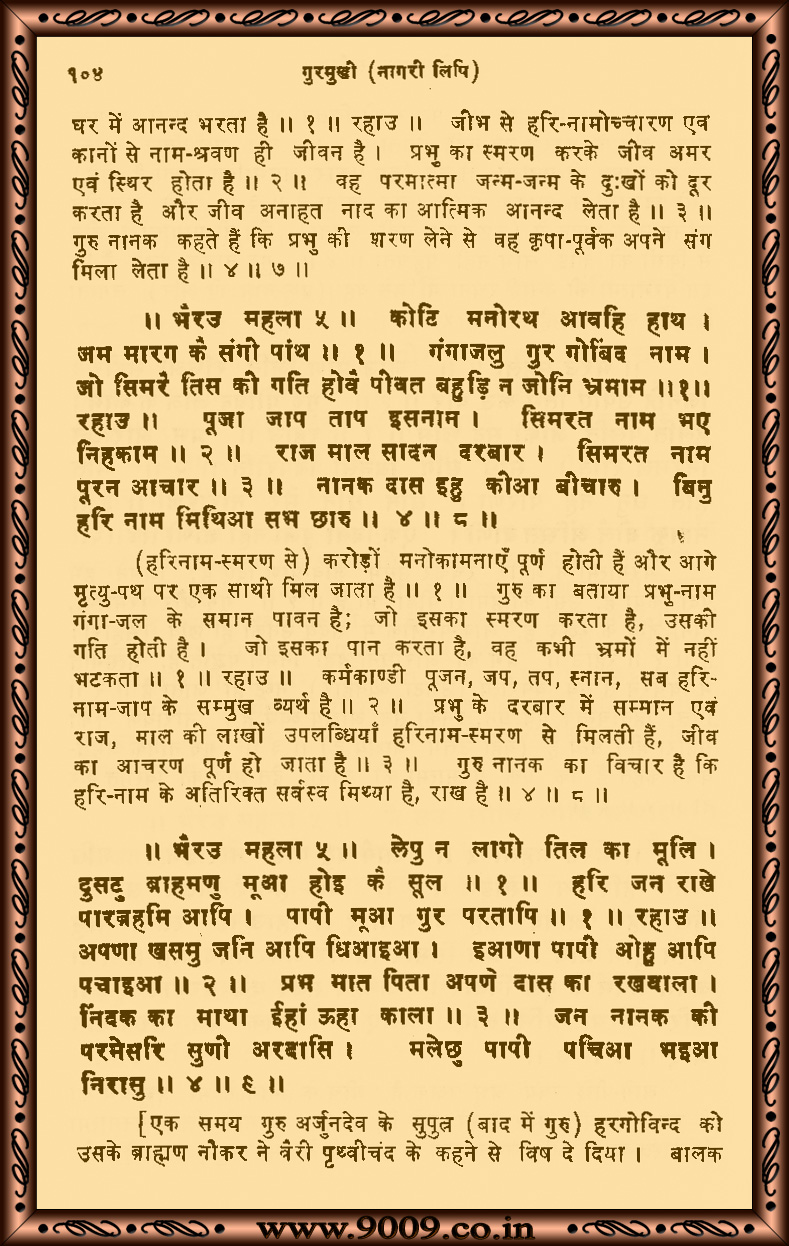 १०४ गुरमुखी (नागरी लिपि)
घर में आनन्द भरता है ॥ १ ॥ रहाउ ॥ जीभ से हरि-नामोच्चारण एव
कानों से नाम-श्रवण ही जीवन है । प्रभु का स्मरण करके जीव अमर
एवं स्थिर होता है ॥ २ ॥ वह परमात्मा जन्म-जन्म के दु:खों को दूर
करता है और जीव अनाहत नाद का आत्मिक आनन्द लेता है ॥ ३ ॥
गुरु नानक कहते हैं कि प्रभु की शरण लेने से वह कृपा-पूर्वक अपने संग
मिला लेता है ॥ ४ ॥ ७ ॥
॥ भैरउ महला ५ ॥ कोटि मनोरथ आवहि हाथ ।
जम मारग कै संगी पांथ ॥ १ ॥ गंगाजलु गुर गोबिंद नाम ।
जो सिमरै तिस की गति होवै पीवत बहुड़ि न जोनि भ्रमाम ॥१॥
रहाउ ॥ पूजा जाप ताप इसनान । सिमरत नाम भए
निहकाम ॥ २ ॥ राज माल सादन दरबार । सिमरत नाम
पूरन आचार ॥ ३ ॥ नानक दास इहु कीआ बीचारु । बिनु
हरि नाम मिथिआ सभ छारु ॥ ४ ॥ ८ ॥
(हरिनाम-स्मरण से) करोड़ों मनोकामनाएँ पूर्ण होती हैं और आगे
मृत्यु-पथ पर एक साथी मिल जाता है ॥ १ ॥ गुरु का बताया प्रभु-नाम
गंगा-जल के समान पावन है; जो इसका स्मरण करता है, उसकी
गति होती है । जो इसका पान करता है, वह कभी भ्रमों में नहीं
भटकता ॥ १ ॥ रहाउ ॥ कर्मकाण्डी पूजन, जप, तप, स्नान, सब हरि-
नाम-जाप के सम्मुख व्यर्थ है ॥ २ ॥ प्रभु के दरबार में सम्मान एवं
राज, माल की लाखों उपलब्धियाँ हरिनाम-स्मरण से मिलती हैं, जीव
का आचरण पूर्ण हो जाता है ॥ ३ ॥ गुरु नानक का विचार है कि
हरि-नाम के अतिरिक्त सर्वस्व मिथ्या है, राख है ॥ ४ ॥ ८ ॥
॥ भैरउ महला ५ ॥ लेपु न लागो तिल का मूलि ।
दुसटु ब्राहमणु मूआ होइ कै सूल ॥ १ ॥ हरि जन राखे
पारब्रहमि आपि । पापी मूआ गुर परतापि ॥ १ ॥ रहाउ ॥
अपणा खसमु जनि आपि धिआइआ । इआणा पापी ओहु आपि
पचाइआ ॥ २ ॥ प्रभ मात पिता अपणे दास का रखवाला ।
निंदक का माथा ईहां ऊहा काला ॥ ३ ॥ जन नानक की
परमेसरि सुणी अरदासि । मलेछु पापी पचिआ भइआ
निरासु ॥ ४ ॥ ९ ॥
[एक समय गुरु अर्जुनदेव के सुपुत्र (बाद में गुरु) हरगोविन्द को
उसके ब्राह्मण नौकर ने वैरी पृथ्वीचंद के कहने से विष दे दिया । बालक
www.9009.co.in